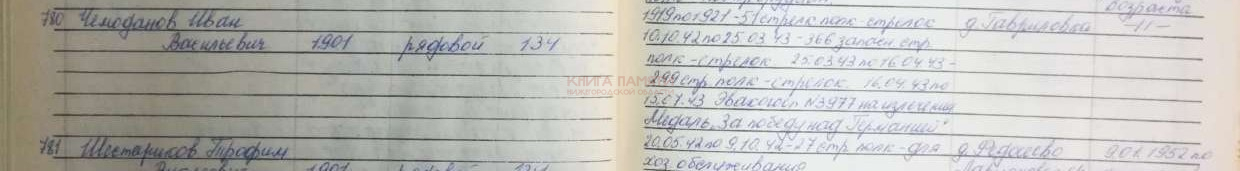 780 Чемоданов Иван
Васильевич 1901 рядовой 134
781 Шестариков Трофим
1901
КНИГА ПАМЯТИ
НИЖЕГОРОДСКОЙ ОБЛАСТИ
возраста
1919 по 1921 - 51 стрелк. полк - стрелок д. Гавриловка -11-
10.10.42 по 25.03.43 - 366 запасн. стр.
полк - стрелок. 25.03.43 по 16.04.43 -
299 стр. полк - стрелок. 16.04.43 по
15.07.43 Эвакогосп. N3977 на излечении
Медаль "За победу над Германией"
20.05.42 по 9.10.42 - 27 стр. полк - для д. Федосеево 9.01.1952 по
хоз. обслуживания